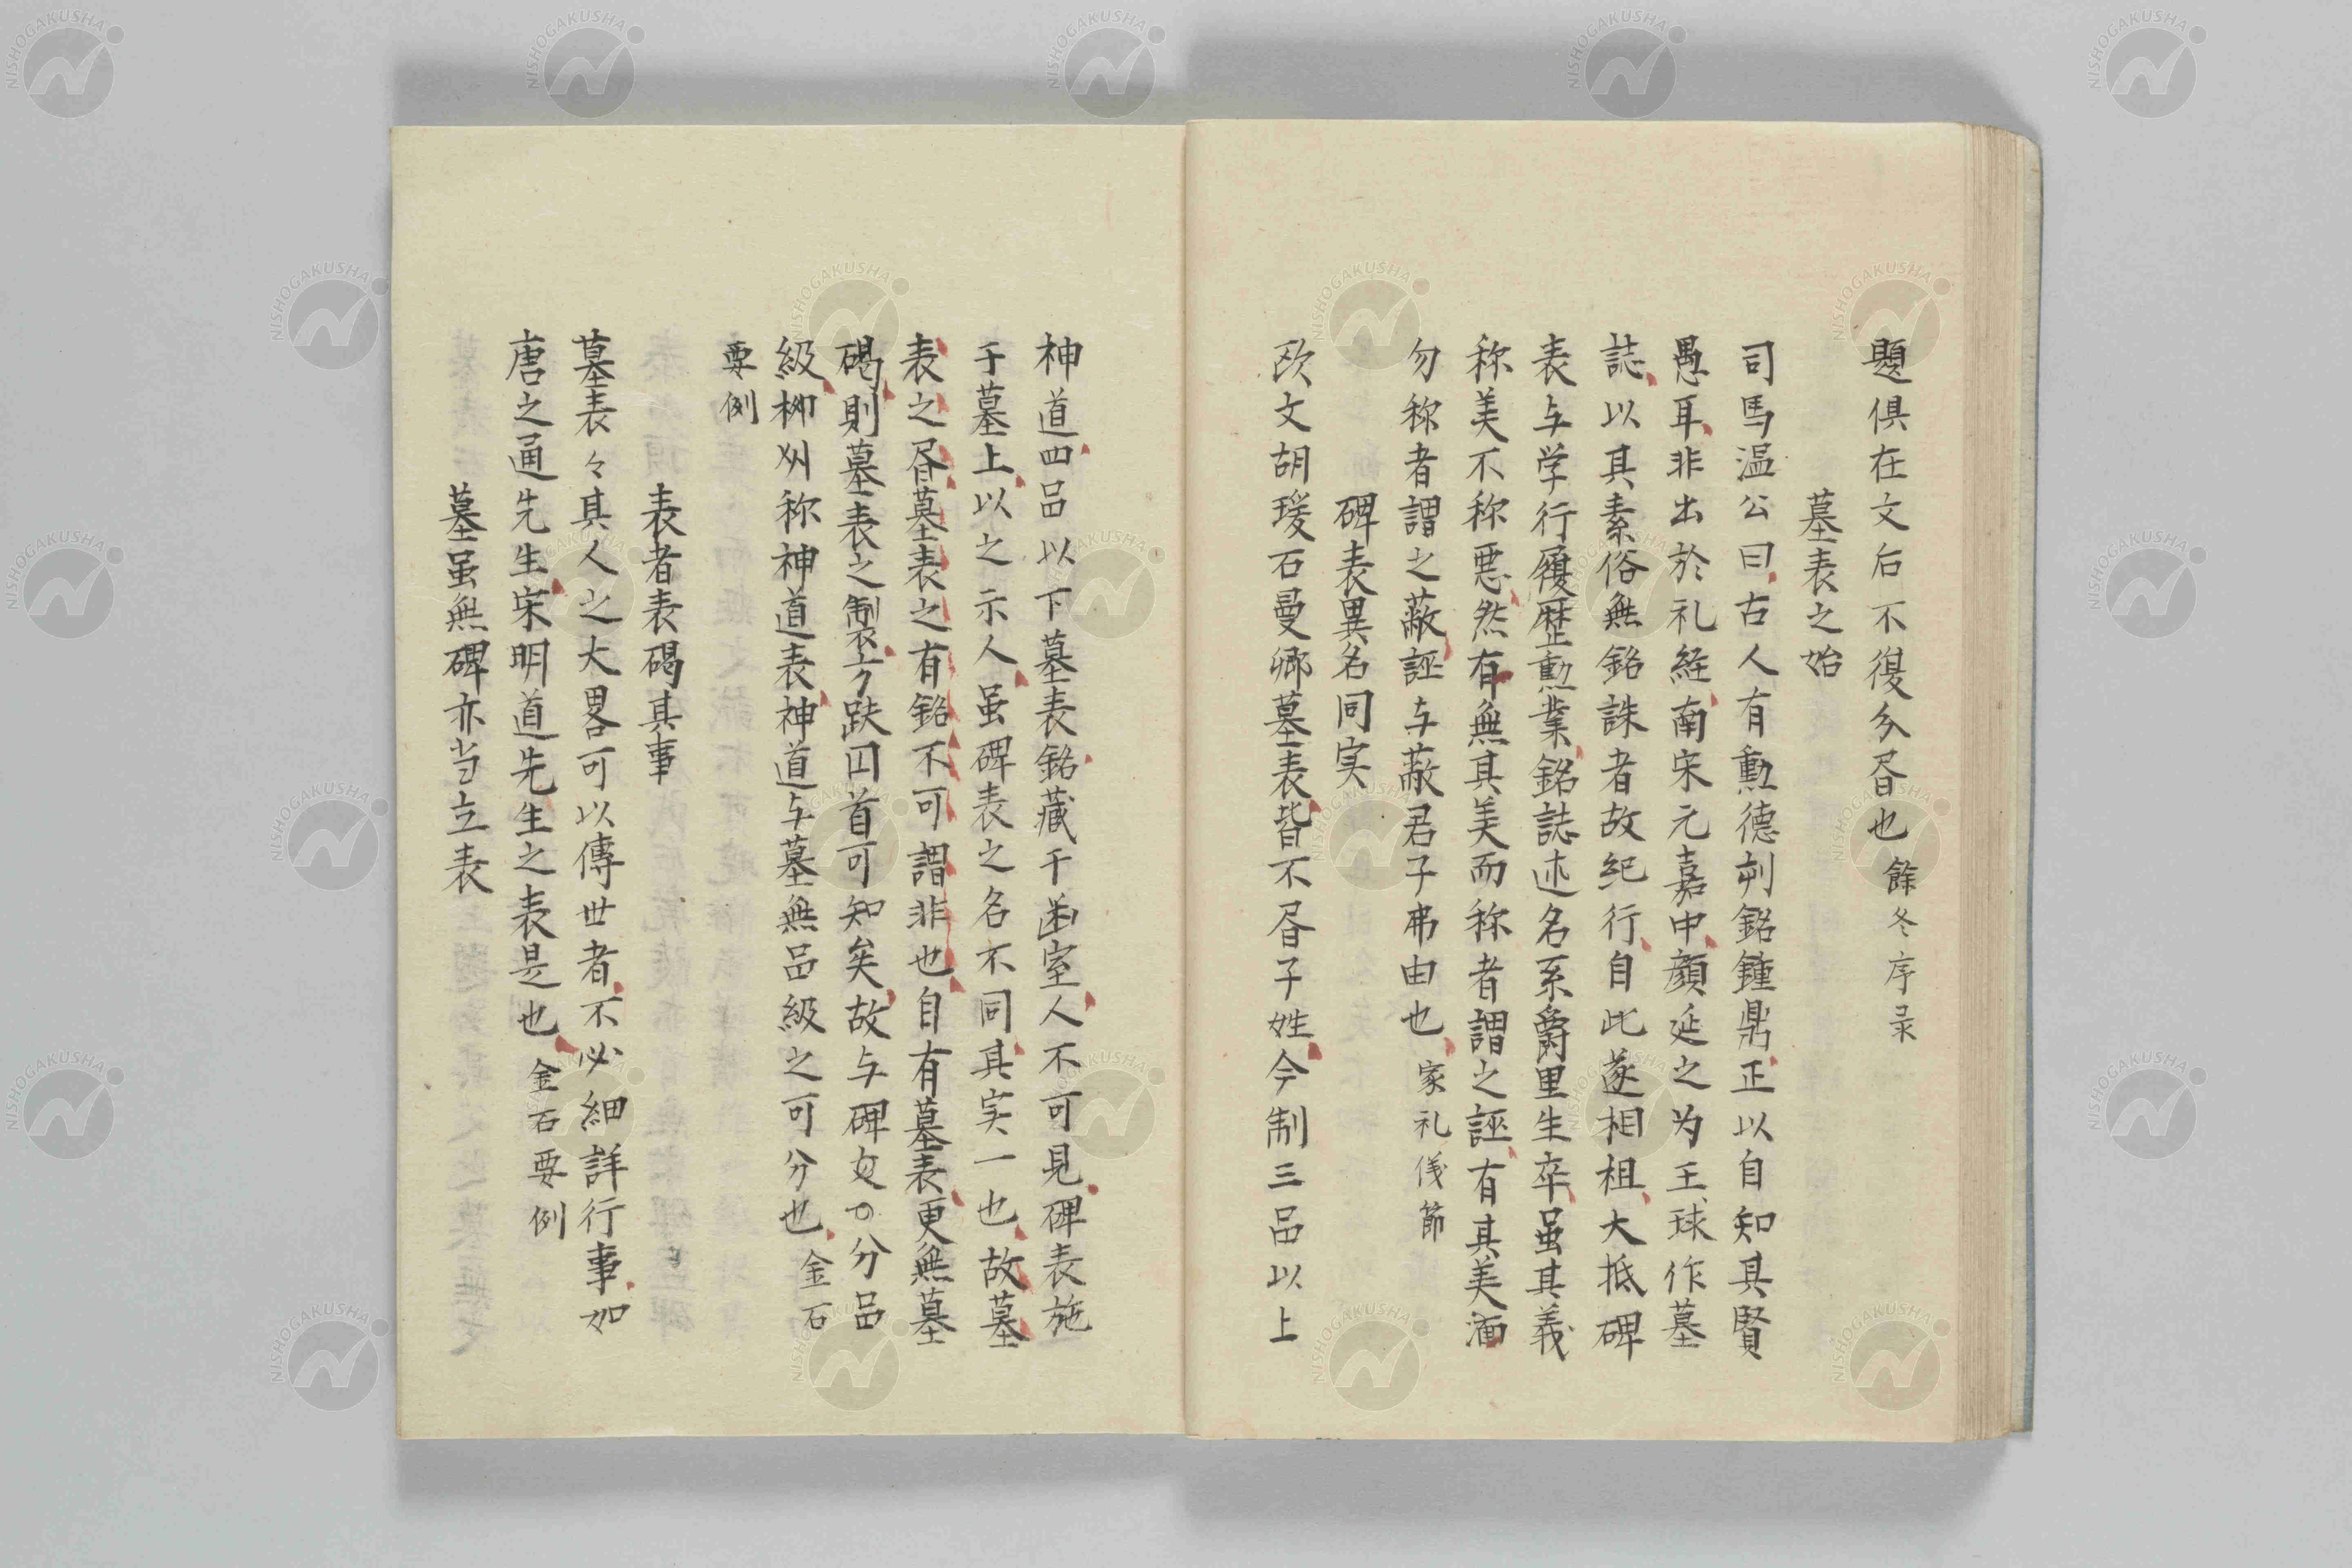 題俱在文后不復多昬也 餘冬序录
墓表之始
司馬温公曰古人有勳德刻銘鍾鼎正以自知其賢
愚耳非出於礼経南宋元嘉中顔延之为王球作墓
誌以其素俗無銘誄者故紀行自此遂相祖大抵碑
表与学行履歴勲業銘誌述名系爵里生卒虽其義
称美不称悪然有無其美而称者謂之誣有其美湎
勿称者謂之蔽誣与蔽君子弗由也 家礼儀節
碑表異名同実
欧文胡瑗石曼卿墓表皆不昬子姓今制三品以上
神道四品以下墓表銘藏于凾室人不可見碑表施
于墓上以之示人虽碑表之名不同其実一也故墓
表之昬墓表之有銘不可謂非也自有墓表更無墓
碣則墓表之製方趺囙首可知矣故与碑文の分品
級柳州称神道表神道与墓無品級之可分也 金石
要例
表者表碣其事
墓表々其人之大畧可以傳世者不必細詳行事如
唐之通先生宋明道先生之表是也 金石要例
墓虽無碑亦当立表